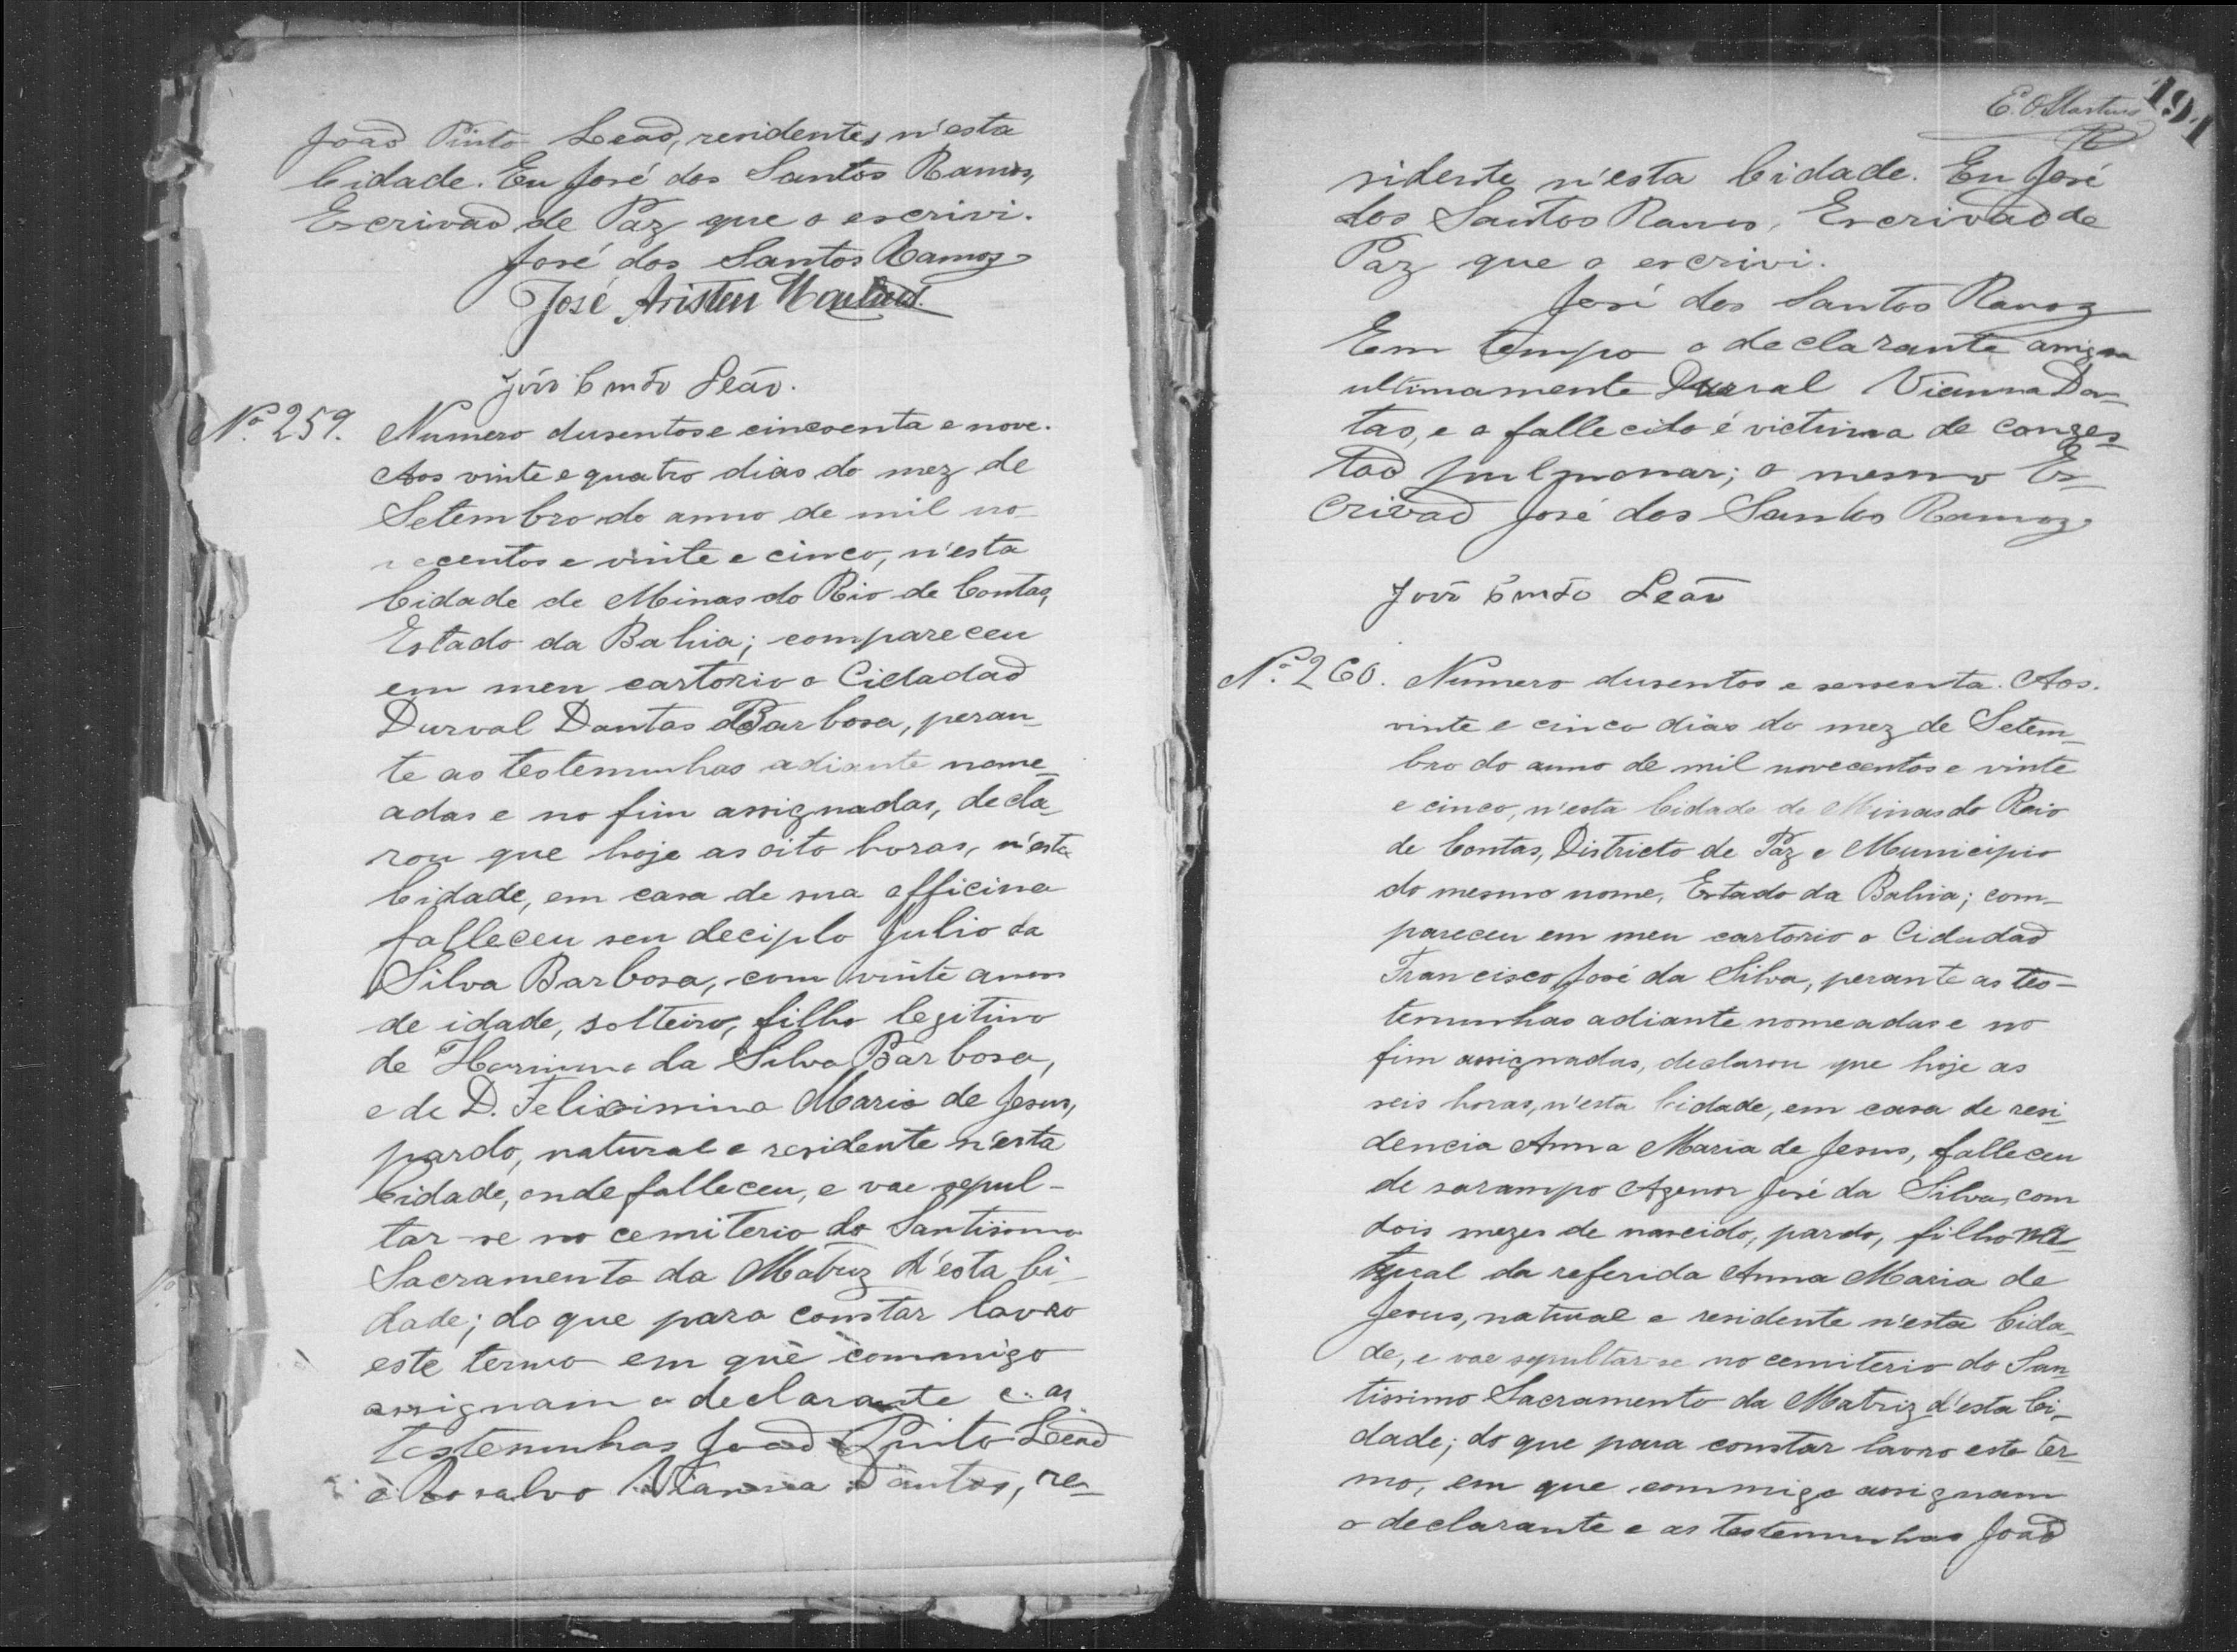 João Pinto Leão, residentes n'esta
Cidade. Eu José dos Santos Ramos,
Escrivão de Paz que o escrivi.
José dos Santos Ramos
José Aristeu
João Pinto Leão.
Nº 259. Numero dusentos e cincoenta e nove.
Aos vinte e quatro dias do mez de
Setembro do anno de mil no-
vecentos e vinte e cinco, n'esta
Cidade de Minas do Rio de Contas,
Estado da Bahia; compareceu
em meu cartorio o Cidadão
Durval Dantas Barbosa, peran-
te as testemunhas adiante nome-
adas e no fim assignadas, decla-
rou que hoje as oito horas, n'esta
Cidade, em casa de sua officina
falleceu seu deciplo Julio da
Silva Barbosa, com vinte annos
de idade, solteiro, filho legitimo
de da Silva Barbosa,
e de D. Maria de Jesus,
pardo, natural e residente n'esta
Cidade, onde falleceu, e vae sepul-
tar-se no cemiterio do Santissimo
Sacramento da Matriz d'esta Ci-
dade; do que para constar lavro
este termo em que commigo
assignam o declarante e as
testemunhas João Pinto Leão
e Rosalvo Vianna Dantas, re-
E. O. Martins
191
sidente n'esta Cidade. Eu José
dos Santos Ramos, Escrivão de
Paz que o escrivi.
José dos Santos Ramos
Em tempo o declarante assigna
ultimamente Durval Vianna Dan-
tas, e o fallecido é victima de conges-
tão pulmonar; o mesmo Es-
crivão José dos Santos Ramos
João Pinto Leão
Nº 260. Numero dusentos e sessenta. Aos
vinte e cinco dias do mez de Setem-
bro do anno de mil novecentos e vinte
e cinco, n'esta Cidade de Minas do Rio
de Contas, Districto de Paz e Municipio
do mesmo nome, Estado da Bahia; com-
pareceu em meu cartorio o Cidadão
Francisco José da Silva, perante as tes-
temunhas adiante nomeadas e no
fim assignadas, declarou que hoje as
seis horas, n'esta Cidade, em casa de resi-
dencia Anna Maria de Jesus, falleceu
de sarampo Agenor José da Silva, com
dois mezes de nascido, pardo, filho na-
tural da referida Anna Maria de
Jesus, natural e residente n'esta Cida-
de, e vae sepultar-se no cemiterio do San-
tissimo Sacramento da Matriz d'esta Ci-
dade; do que para constar lavro este ter-
mo, em que commigo assignam
o declarante e as testemunhas João